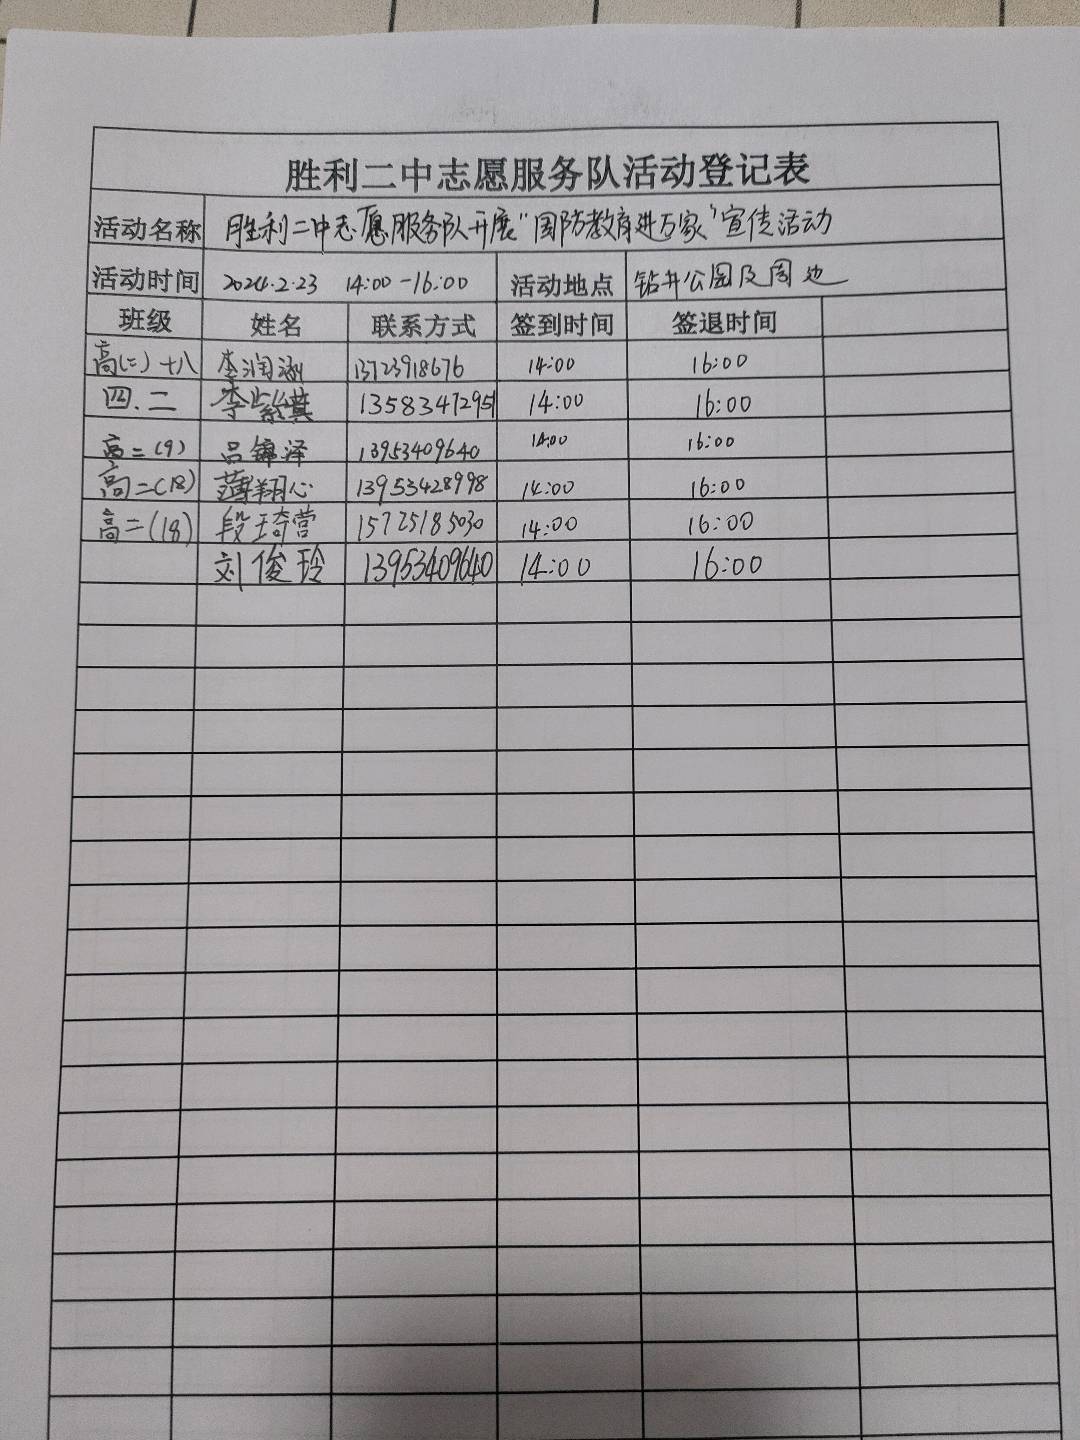 胜利二中志愿服务队活动登记表
活动名称 胜利二中志愿服务队开展“国防教育进万家”宣传活动
活动时间 2024.2.23 14:00-16:00 活动地点 钻井公园及周边
班级 姓名 联系方式 签到时间 签退时间
高(二)十八 李润涵 13723918676 14:00 16:00
四.二 李紫祺 13583472951 14:00 16:00
高二(9) 吕锦泽 13953409640 14:00 16:00
高二(18) 薄翔心 13953428998 14:00 16:00
高二(18) 段琦营 15725185030 14:00 16:00
刘俊玲 13953409640 14:00 16:00